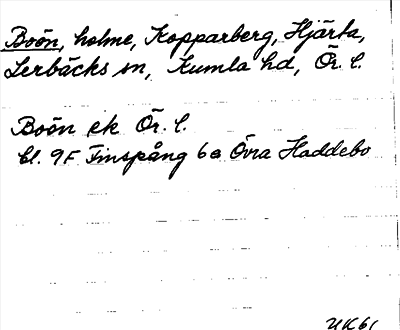 Boön, holme, Kopparberg, Hjärta,
Lerbäcks sn, Kumla hd, Ör. l.
Boön ek Ör. l.
bl. 9F Finspång 6a Övra Haddebo